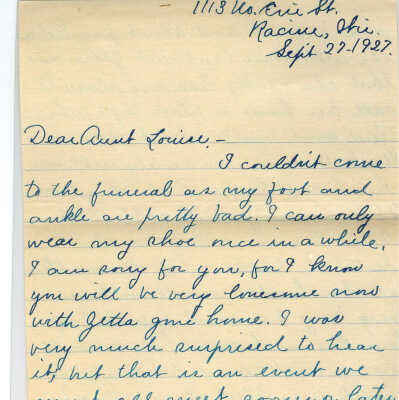 1113 No. Erie St.
Racine, Wis.
Sept 27-1927.
Dear Aunt Louise,-
I couldn't come
to the funeral as my foot and
ankle are pretty bad. I can only
wear my shoe once in a while.
I am sorry for you, for I know
you will be very lonesome now
with Zetta gone home. I was
very much surprised to hear
it, but that is an event we
must all meet sooner or later